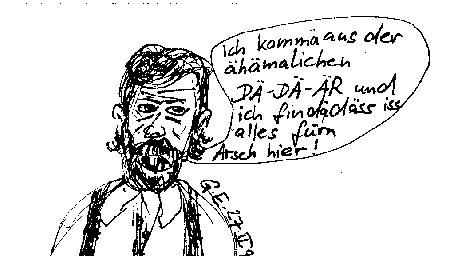 Ich kommä aus der
ähämalichen
DÄ-DÄ-ÄR und
ich findädäss iss
alles fürn
Arsch hier!
G.E. 27 II 9